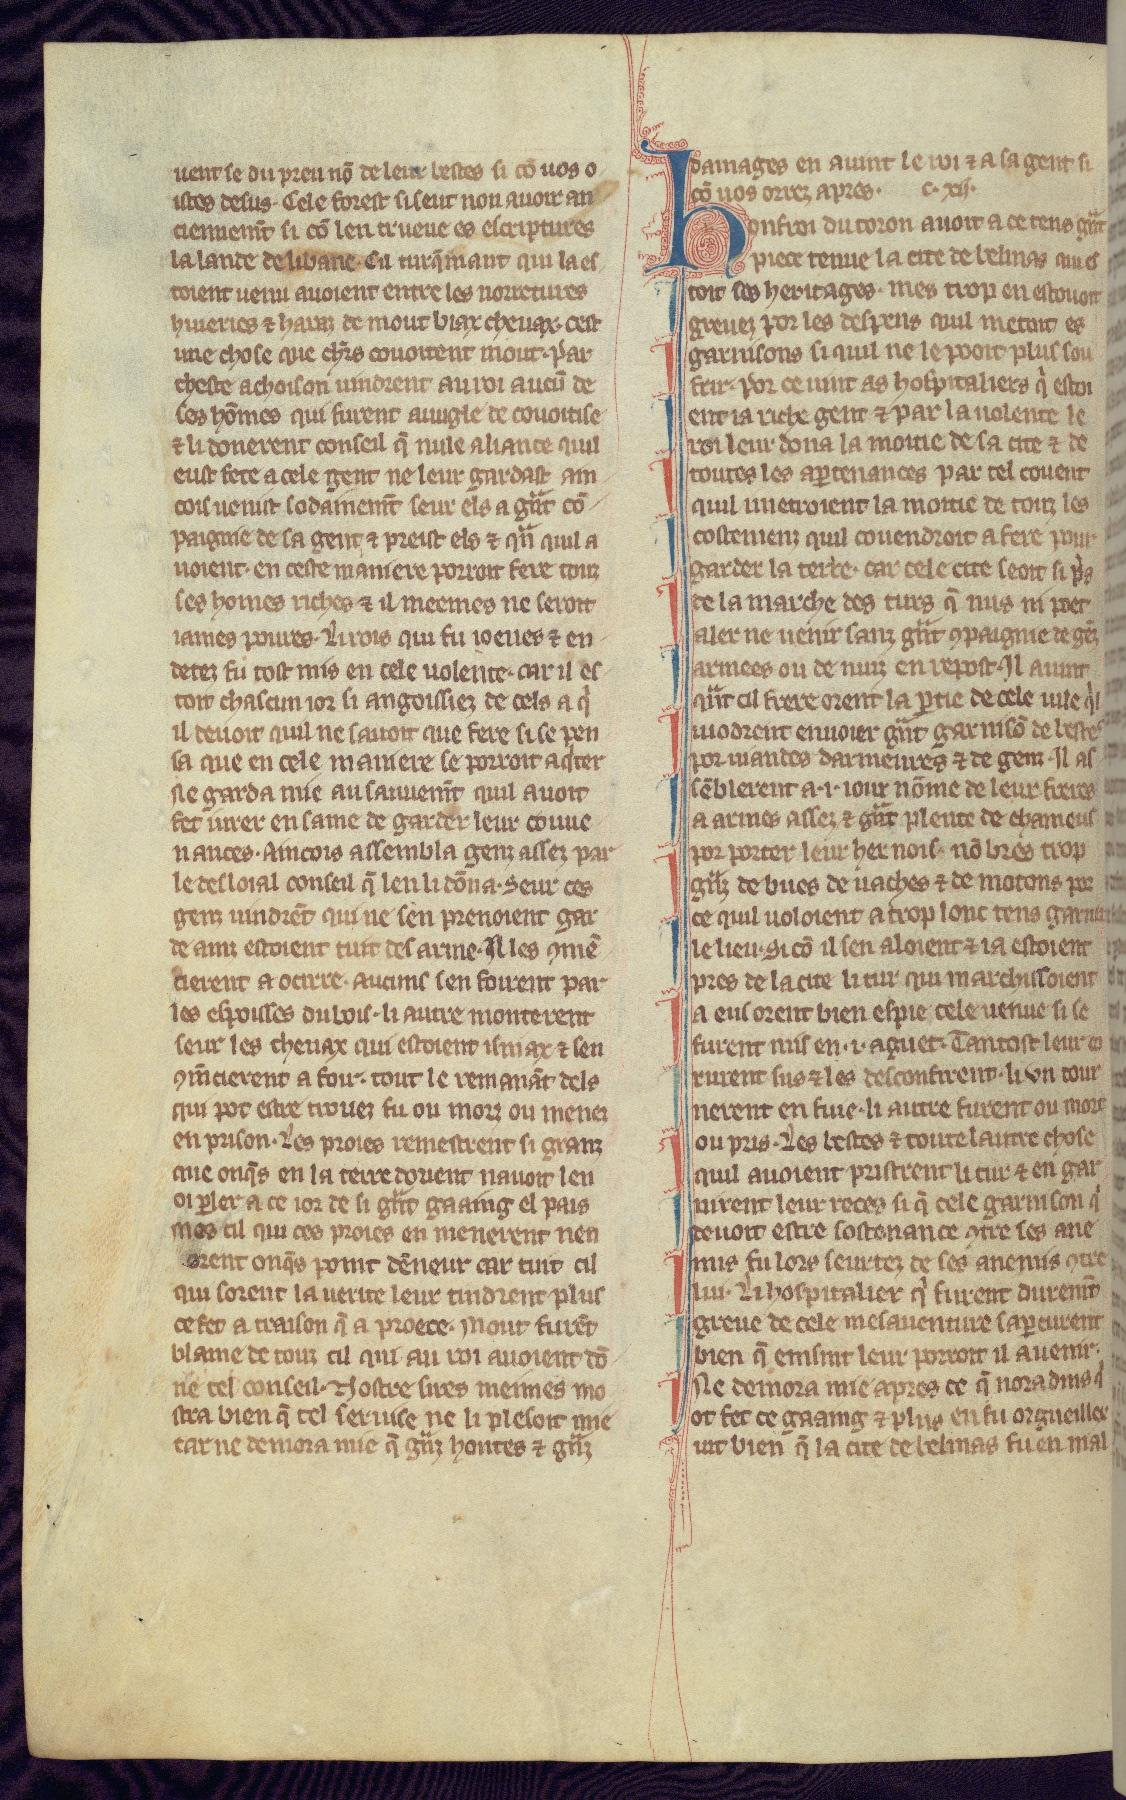 uent se du preu nō de leur bestes si cō uos o
istes desus. Cele forest siseut non auoir an
cienneim̄t si cō len trueue es escriptures
la lande de libane. Cil turq̄maut qui la es
toient uenu auoient entre les norretures
hiueries & haraz de mout biax cheuax. cest
une chose que ch'rs couoitent mout. Par
cheste achoison uindrent au roi aucū de
ses hōmes qui furent auugle de couoitise
& li donerent conseil q̄ nule aliance quil
eust fete a cele gent ne leur gardast ain
cois uenist sodainem̄t seur els a gūt cō
paignie de sa gent & preist els & qūt quil a
uoient. en ceste maniere porroit fere touz
ses homes riches & il meemes ne seroit
iames poures. Li rois qui fu ioenes & en
detez fu tost mis en cele uolente. car il es
toit chascun ior si angoissiez de cels a q'
il deuoit quil ne sauoit que fere si se pen
sa que en cele maniere se porroit aq'ter
Ne garda mie au sauuem̄t quil auoit
fet iurer en same de garder leur couue
nances. Aincois assembla genz assez par
le desloial conseil q̄ len li dōna. Seur ces
genz uindrēt qui ne sen prenoient gar
de ainz estoient tuit desarme. Il les 9mē
cierent a ocirre. Aucuns sen foirent par
les espoisses du bois. li autre monterent
seur les cheuax qui estoient isniax & sen
9m̄cierent a foir. tout le remanāt dels
qui pot estre trouez fu ou morz ou menez
en prison. Les proies remestrent si granz
que onq̄s en la terre dorient nauoit len
oi p̱ler a ce ior de si gūt gaaing el pais
mes cil qui ces proies en menerent nen
orent onq̄s point dēneur car tuit cil
qui sorent la uerite leur tindrent plus
ce fet a traison q̄ a proece. Mout furēt
blame de touz cil qui au roi auoient dō
ne tel conseil. Nostre sires meimes mo
stra bien q̄ tel seruise ne li plesoit mie
car ne demora mie q̄ gūz hontes & gūz
damages en auint le roi & a sa gent si
cō uos orrez apres. c. xii.
honfroi du toron auoit a ce tens gūt
piece tenue la cite de belinas qui es
toit ses heritages. mes trop en estouoit
greuez por les despens quil metoit es
garnisons si quil ne le pooit plus sou
frir. Por ce uint as hospitaliers q' estoi
ent ia riche gent & par la uolente le
roi leur dona la moitie de sa cite & de
toutes les ap̱tenances par tel couent
quil i metroient la moitie de touz les
costemenz quil couendroit a fere pour
garder la terre. car cele cite seoit si p's
de la marche des turs q̄ nus ni poet
aler ne uenir sanz gūt 9paignie de gēz
armees ou de nuiz en repost. Il auint
qūt cil frere orent la p̱tie de cele uile q'l
uiodrent enuoier gūt garnisō de bestes
por uiandes darmeures & de genz. Il as
sēblerent a .i. iour nōme de leur freres
a armes assez & gūt plente de chameus
por porter leur hernois. nō bres trop
gūz de bues de uaches & de motons por
ce quil uoloient a trop lonc tens garnir
le lieu. Si cō il sen aloient & ia estoient
pres de la cite li tur qui marchissoient
a eus orent bien espie cele uenue si se
furent mis en .i. aguet. Tantost leur co
rurent sus & les desconfirent. li vn tour
nerent en fuie. li autre furent ou mort
ou pris. Les bestes & toute lautre chose
quil auoient pristrent li tur & en gar
nirent leur reces si q̄ cele garnison q'
deuoit estre sostenance 9tre ses ane
mis fu lors seurtez de ses anemis 9tre
lui. Li hospitalier q' furent durem̄t
greue de cele mesauenture sap̱curent
bien q̄ einsint leur porroit il auenir.
Ne demora mie apres ce q̄ noradins q'
ot fet ce gaaing & plus en fu orgueillex
uit bien q̄ la cite de belinas fu en mal